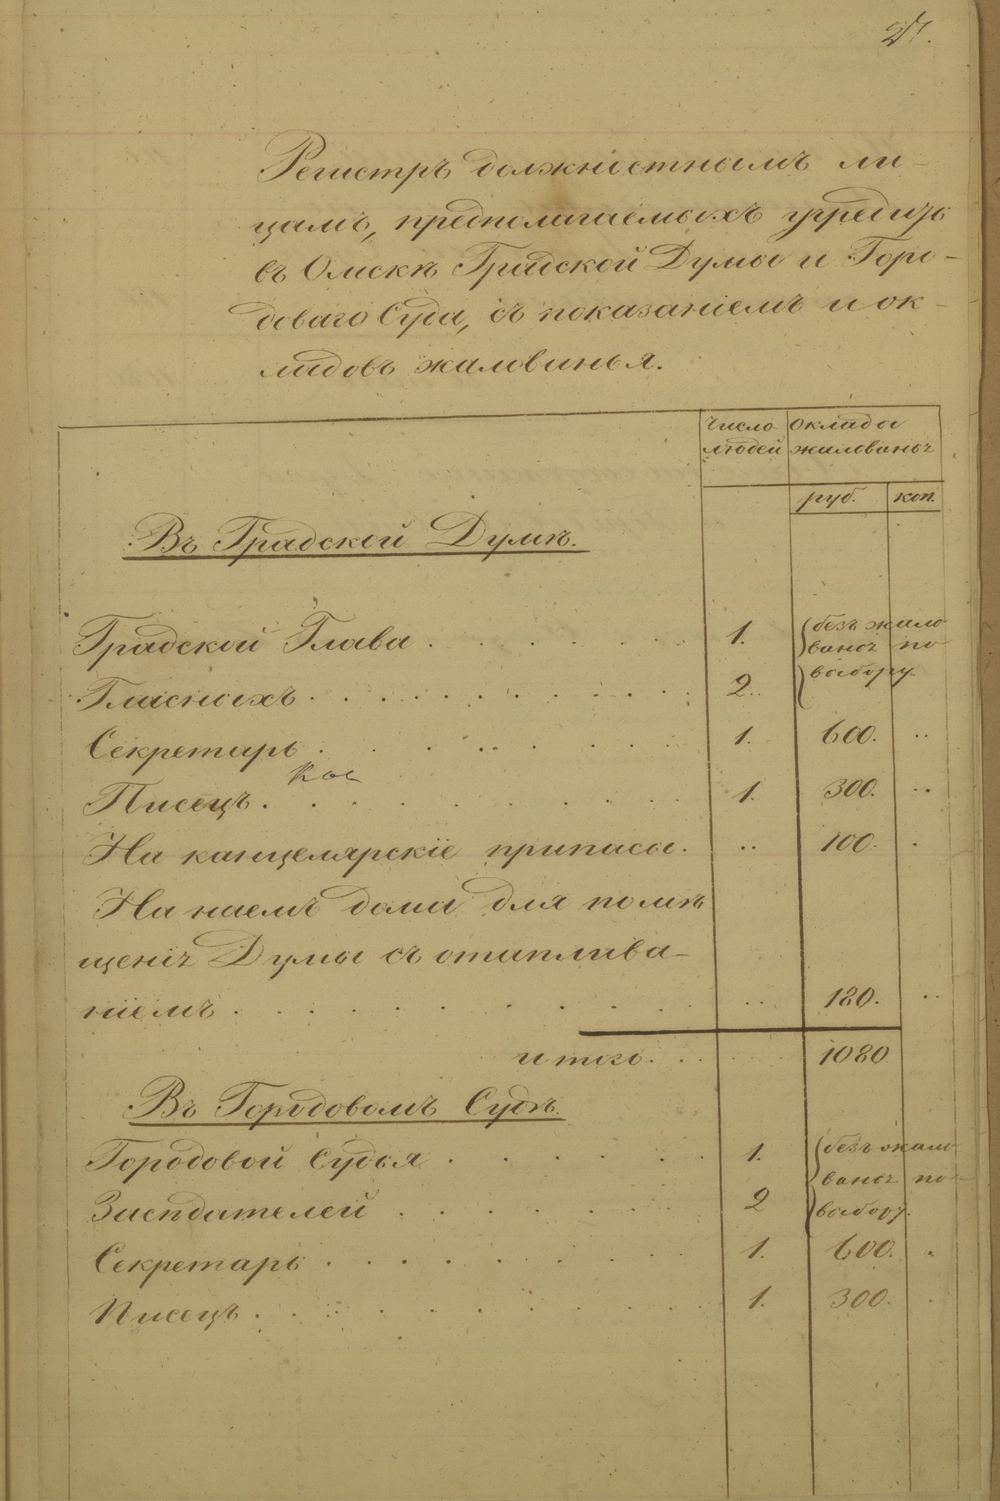 Регистръ должностнымъ ли-
цамъ, предполагаемыхъ учредить
въ Омскѣ Градской Думы и Горо-
доваго Суда, съ показаніемъ и ок-
ладовъ жалованья.
Число людей
оклады жалованья
руб. коп.
Въ Градской Думѣ.
Градской Глава . . . . . . 1. безъ жало
Гласныхъ . . . . . . . . 2. ванья по выбору
Секретарь . . . . . . . 1. 600. ..
Писецъ . . . . . . . . 1. 300. ..
На канцелярскіе припасы. .. 100. .
На наемъ дома для помѣ
щенія Думы съ отаплива-
ніемъ . . . . . . . . .. 180. ..
итого. . . 1080
Въ Городовомъ Судѣ.
Городовой Судья . . . . . . 1. безъ жало
Засѣдателей . . . . . . 2 ванья по выбору.
Секретарь . . . . . . . 1. 600. .
Писецъ . . . . . . . . 1. 300. .